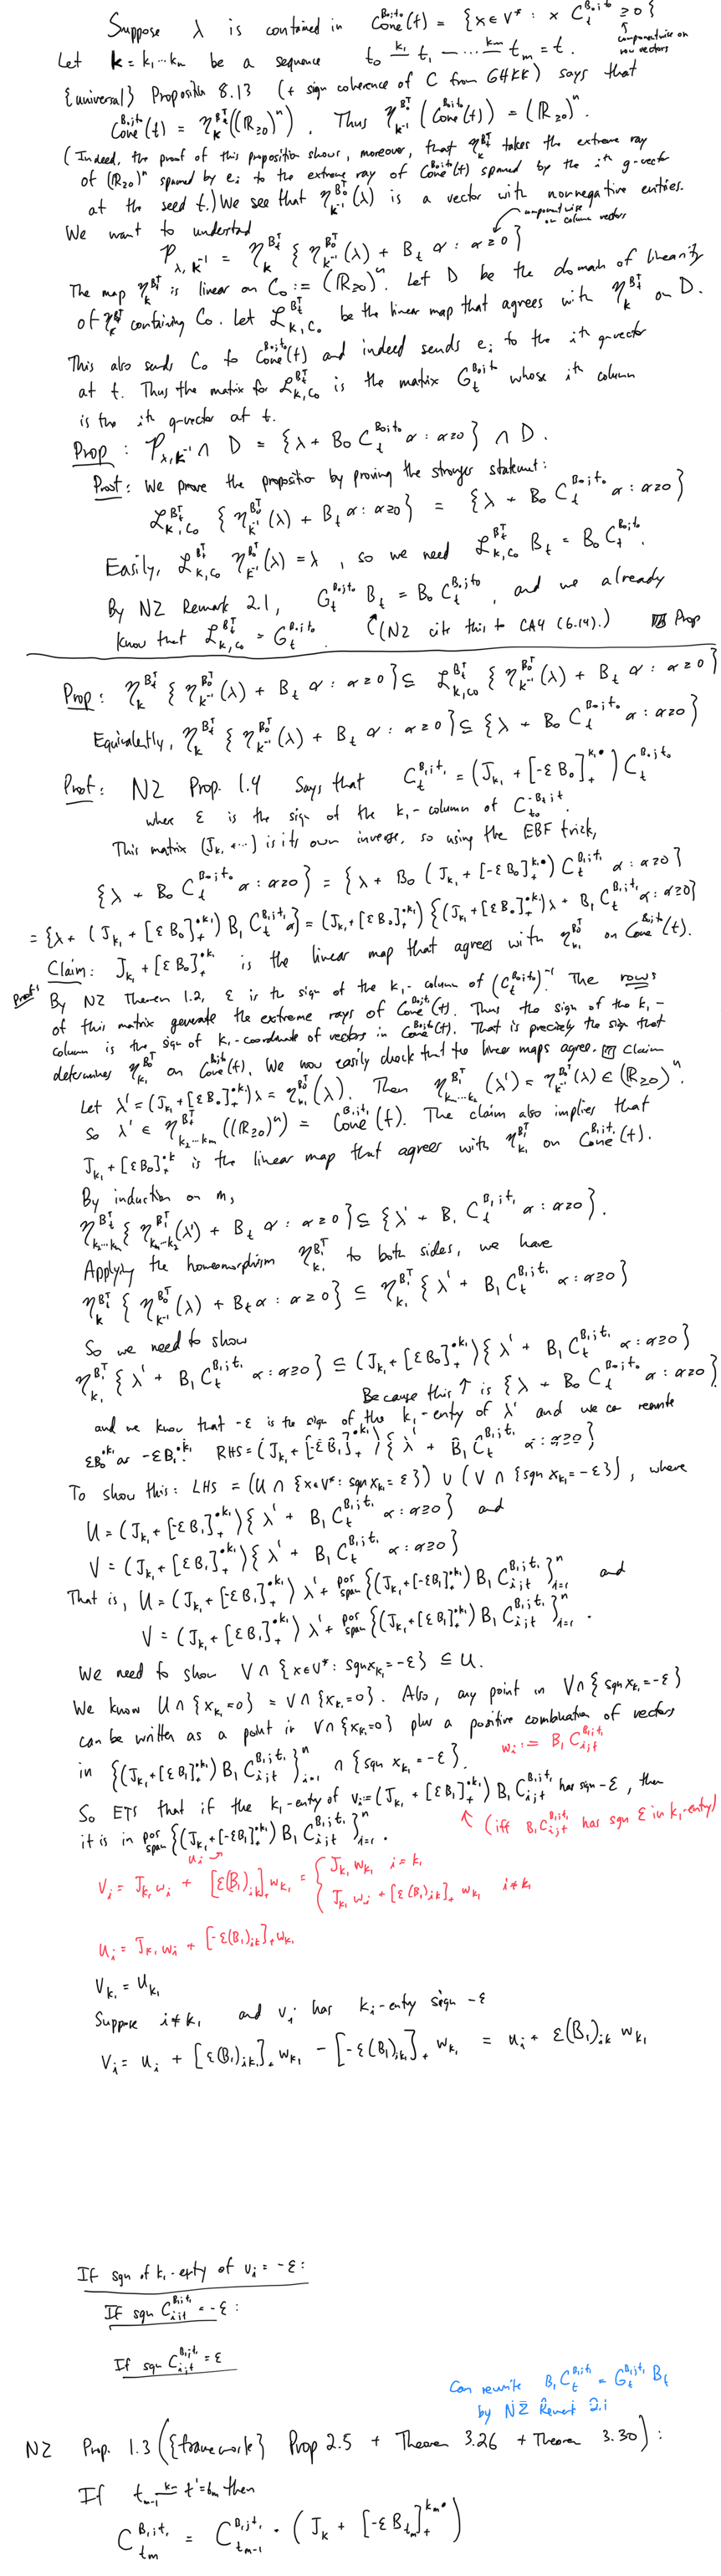 Suppose λ is contained in Cone^{B_0;t_0}(t) = {x ∈ V* : x C_t^{B_0;t_0} ≥ 0}
componentwise on row vectors
Let k = k_1 ⋯ k_m be a sequence t_0 —k_1— t_1 — ⋯ —k_m— t_m = t.
{universal} Proposition 8.13 (+ sign coherence of C from GHKK) says that
Cone^{B_0;t_0}(t) = η_k^{B_t^T}((ℝ_{≥0})^n). Thus η_{k^{-1}}^{B_0^T}(Cone^{B_0;t_0}(t)) = (ℝ_{≥0})^n.
(Indeed, the proof of this proposition shows, moreover, that η_k^{B_t^T} takes the extreme ray
of (ℝ_{≥0})^n spanned by e_i to the extreme ray of Cone^{B_0;t_0}(t) spanned by the ith g-vector
at the seed t.) We see that η_{k^{-1}}^{B_0^T}(λ) is a vector with nonnegative entries.
We want to understand
componentwise on column vectors
P_{λ,k^{-1}} = η_k^{B_t^T} {η_{k^{-1}}^{B_0^T}(λ) + B_t α : α ≥ 0}
The map η_k^{B_t^T} is linear on C_0 := (ℝ_{≥0})^n. Let D be the domain of linearity
of η_k^{B_t^T} containing C_0. Let ℒ_{k,C_0}^{B_t^T} be the linear map that agrees with η_k^{B_t^T} on D.
This also sends C_0 to Cone^{B_0;t_0}(t) and indeed sends e_i to the ith g-vector
at t. Thus the matrix for ℒ_{k,C_0}^{B_t^T} is the matrix G_t^{B_0;t_0} whose ith column
is the ith g-vector at t.
Prop: P_{λ,k^{-1}} ∩ D = {λ + B_0 C_t^{B_0;t_0} α : α ≥ 0} ∩ D.
Proof: We prove the proposition by proving the stronger statement:
ℒ_{k,C_0}^{B_t^T} {η_{k^{-1}}^{B_0^T}(λ) + B_t α : α ≥ 0} = {λ + B_0 C_t^{B_0;t_0} α : α ≥ 0}
Easily, ℒ_{k,C_0}^{B_t^T} η_{k^{-1}}^{B_0^T}(λ) = λ, so we need ℒ_{k,C_0}^{B_t^T} B_t = B_0 C_t^{B_0;t_0}.
By NZ Remark 2.1, G_t^{B_0;t_0} B_t = B_0 C_t^{B_0;t_0}, and we already
know that ℒ_{k,C_0}^{B_t^T} = G_t^{B_0;t_0}. (NZ cite this to CA4 (6.14).) Prop
Prop: η_k^{B_t^T} {η_{k^{-1}}^{B_0^T}(λ) + B_t α : α ≥ 0} ⊆ ℒ_{k,C_0}^{B_t^T} {η_{k^{-1}}^{B_0^T}(λ) + B_t α : α ≥ 0}
Equivalently, η_k^{B_t^T} {η_{k^{-1}}^{B_0^T}(λ) + B_t α : α ≥ 0} ⊆ {λ + B_0 C_t^{B_0;t_0} α : α ≥ 0}
Proof: NZ Prop. 1.4 says that C_t^{B_1;t_1} = (J_{k_1} + [-εB_0]_+^{k_1•}) C_t^{B_0;t_0}
where ε is the sign of the k_1-column of C_{t_0}^{-B_t;t}.
This matrix (J_{k_1} + ⋯) is its own inverse, so using the EBF trick,
{λ + B_0 C_t^{B_0;t_0} α : α ≥ 0} = {λ + B_0 (J_{k_1} + [-εB_0]_+^{k_1•}) C_t^{B_1;t_1} α : α ≥ 0}
= {λ + (J_{k_1} + [εB_0]_+^{•k_1}) B_1 C_t^{B_1;t_1} α} = (J_{k_1} + [εB_0]_+^{•k_1}) {(J_{k_1} + [εB_0]_+^{•k_1}) λ + B_1 C_t^{B_1;t_1} α : α ≥ 0}
Claim: J_{k_1} + [εB_0]_+^{•k_1} is the linear map that agrees with η_{k_1}^{B_0^T} on Cone^{B_0;t_0}(t).
Proof: By NZ Theorem 1.2, ε is the sign of the k_1-column of (C_t^{B_0;t_0})^{-1}. The rows
of this matrix generate the extreme rays of Cone^{B_0;t_0}(t). Thus the sign of the k_1-
column is the sign of k_1-coordinate of vectors in Cone^{B_0;t_0}(t). That is precisely the sign that
determines η_{k_1}^{B_0^T} on Cone^{B_0;t_0}(t). We now easily check that the linear maps agree. Claim
Let λ' = (J_{k_1} + [εB_0]_+^{•k_1}) λ = η_{k_1}^{B_0^T}(λ). Then η_{k_m⋯k_2}^{B_1^T}(λ') = η_{k^{-1}}^{B_0^T}(λ) ∈ (ℝ_{≥0})^n.
So λ' ∈ η_{k_2⋯k_m}^{B_t^T}((ℝ_{≥0})^n) = Cone^{B_1;t_1}(t). The claim also implies that
J_{k_1} + [εB_0]_+^{•k} is the linear map that agrees with η_{k_1}^{B_1^T} on Cone^{B_1;t_1}(t).
By induction on m,
η_{k_2⋯k_m}^{B_t^T} {η_{k_m⋯k_2}^{B_1^T}(λ') + B_t α : α ≥ 0} ⊆ {λ' + B_1 C_t^{B_1;t_1} α : α ≥ 0}.
Applying the homeomorphism η_{k_1}^{B_1^T} to both sides, we have
η_k^{B_t^T} {η_{k^{-1}}^{B_0^T}(λ) + B_t α : α ≥ 0} ⊆ η_{k_1}^{B_1^T} {λ' + B_1 C_t^{B_1;t_1} α : α ≥ 0}
So we need to show
η_{k_1}^{B_1^T} {λ' + B_1 C_t^{B_1;t_1} α : α ≥ 0} ⊆ (J_{k_1} + [εB_0]_+^{•k_1}) {λ' + B_1 C_t^{B_1;t_1} α : α ≥ 0}
Because this ↑ is {λ + B_0 C_t^{B_0;t_0} α : α ≥ 0}.
and we know that -ε is the sign of the k_1-entry of λ' and we can rewrite
εB_0^{•k_1} as -εB_1^{•k_1}. RHS = (J_{k_1} + [-εB_1]_+^{•k_1}) {λ' + B_1 C_t^{B_1;t_1} α : α ≥ 0}
To show this: LHS = (U ∩ {x ∈ V* : sgn x_{k_1} = ε}) ∪ (V ∩ {sgn x_{k_1} = -ε}), where
U = (J_{k_1} + [-εB_1]_+^{•k_1}) {λ' + B_1 C_t^{B_1;t_1} α : α ≥ 0} and
V = (J_{k_1} + [εB_1]_+^{•k_1}) {λ' + B_1 C_t^{B_1;t_1} α : α ≥ 0}
That is, U = (J_{k_1} + [-εB_1]_+^{•k_1}) λ' + pos span {(J_{k_1} + [-εB_1]_+^{•k_1}) B_1 C_{i;t}^{B_1;t_1}}_{i=1}^n and
V = (J_{k_1} + [εB_1]_+^{•k_1}) λ' + pos span {(J_{k_1} + [εB_1]_+^{•k_1}) B_1 C_{i;t}^{B_1;t_1}}_{i=1}^n.
We need to show V ∩ {x ∈ V* : sgn x_{k_1} = -ε} ⊆ U.
We know U ∩ {x_{k_1} = 0} = V ∩ {x_{k_1} = 0}. Also, any point in V ∩ {sgn x_{k_1} = -ε}
can be written as a point in V ∩ {x_{k_1} = 0} plus a positive combination of vectors
in {(J_{k_1} + [εB_1]_+^{•k_1}) B_1 C_{i;t}^{B_1;t_1}}_{i=1}^n ∩ {sgn x_{k_1} = -ε}. w_i := B_1 C_{i;t}^{B_1;t_1}
So ETS that if the k_1-entry of v_i := (J_{k_1} + [εB_1]_+^{•k_1}) B_1 C_{i;t}^{B_1;t_1} has sgn -ε, then
it is in pos span {(J_{k_1} + [-εB_1]_+^{•k_1}) B_1 C_{i;t}^{B_1;t_1}}_{i=1}^n. ↑ (iff B_1 C_{i;t}^{B_1;t_1} has sgn ε in k_1-entry)
u_i
v_i = J_{k_1} w_i + [ε(B_1)_{ik}]_+ w_{k_1} = { J_{k_1} w_{k_1} i = k_1
J_{k_1} w_i + [ε(B_1)_{ik}]_+ w_{k_1} i ≠ k_1
u_i = J_{k_1} w_i + [-ε(B_1)_{ik}]_+ w_{k_1}
v_{k_1} = u_{k_1}
Suppose i ≠ k_1 and v_i has k_1-entry sign -ε
v_i = u_i + [ε(B_1)_{ik_1}]_+ w_{k_1} - [-ε(B_1)_{ik_1}]_+ w_{k_1} = u_i + ε(B_1)_{ik} w_{k_1}
If sgn of k_1-entry of v_i = -ε:
If sgn C_{i;t}^{B_1;t_1} = -ε:
If sgn C_{i;t}^{B_1;t_1} = ε
Can rewrite B_1 C_t^{B_1;t_1} = G_t^{B_1;t_1} B_t
by NZ Remark 2.1
NZ Prop. 1.3 ({framework} Prop 2.5 + Theorem 3.26 + Theorem 3.30):
If t_{m-1} —k_m— t' = t_m then
C_{t_m}^{B_1;t_1} = C_{t_{m-1}}^{B_1;t_1} · (J_k + [-εB_{t_m}]_+^{k_m•})